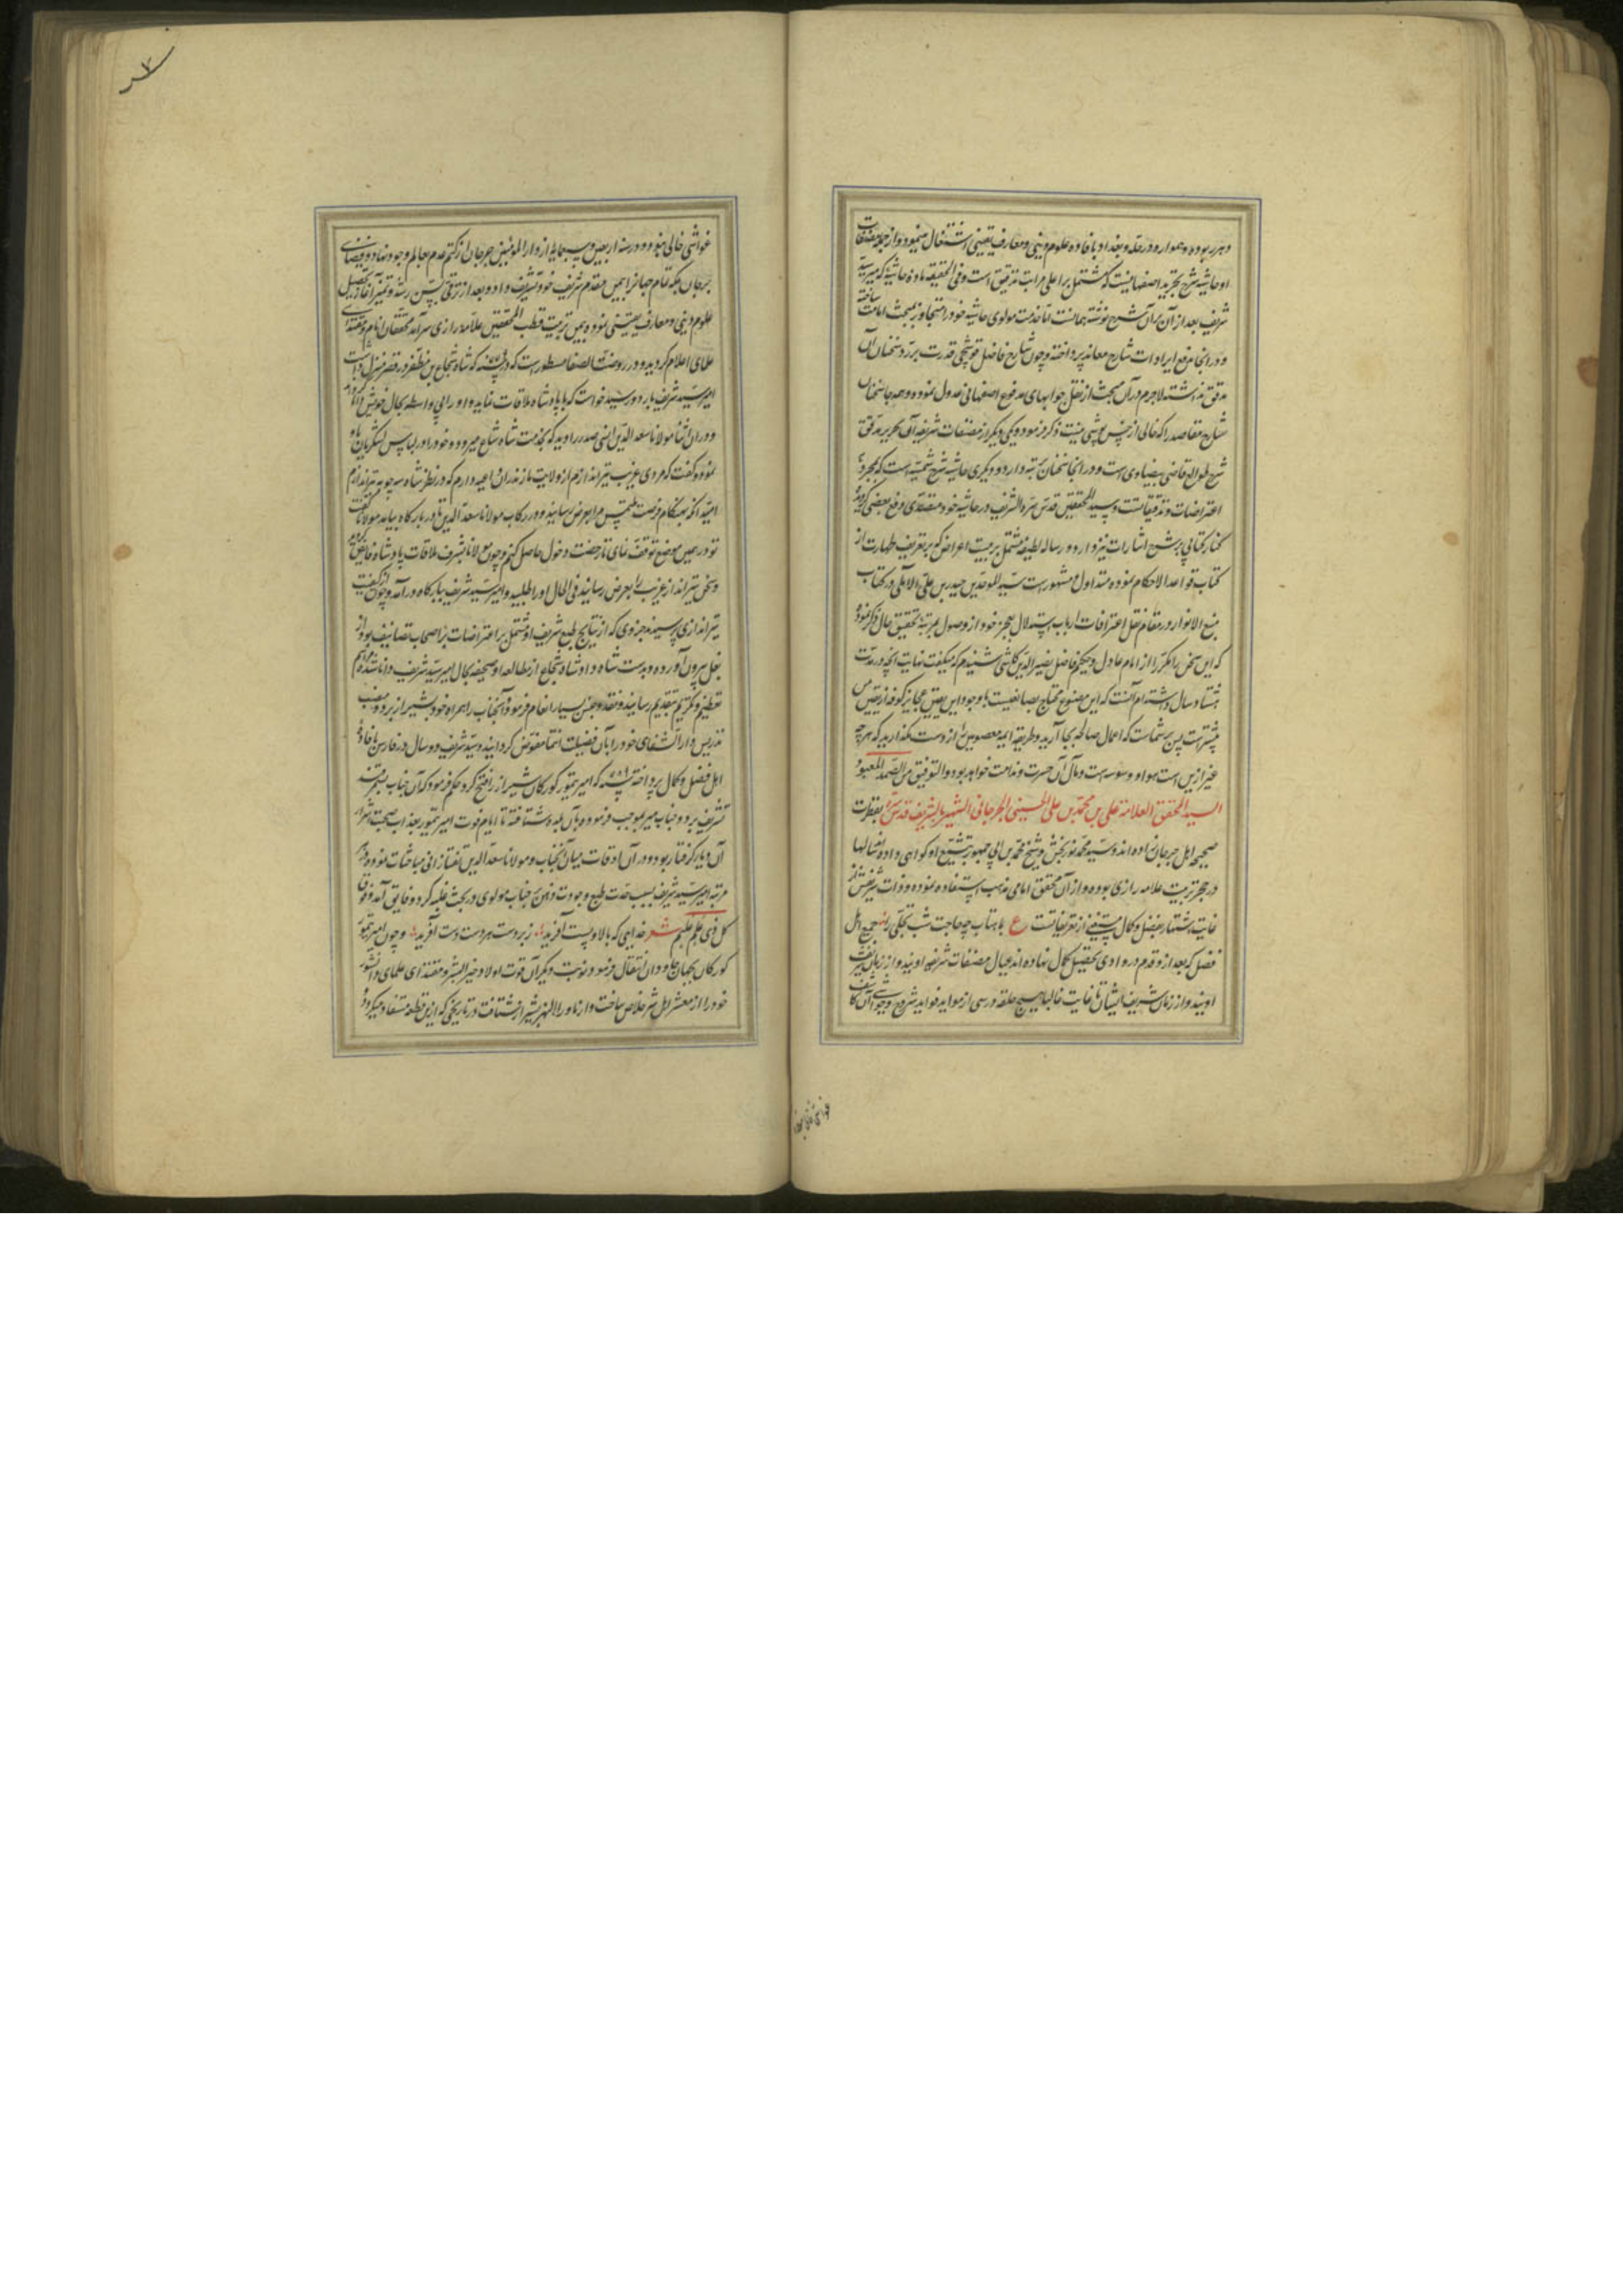 و هرر بوده و همواره در حله و بغداد بافاده علوم دینی و معارف یقینی اشتغال مینمود و از جمله مصنفات
او حاشیه شرح تجرید اصفهانیست که مشتمل بر اعلی مراتب تدقیق است و فی الحقیقه ماده حاشیه که میر سید
شریف بعد از آن بر آن شرح نوشته همانست اما خدمت مولوی حاشیه خود را متجاوز بمبحث امامت ساخته
و در انجا برفع ایرادات شارح معاند پرداخته و چون شارح فاضل قوشچی قدرت بر رد سخنان آن
مدقق نداشته لاجرم در آن مبحث از نقل جوابهای مدفوع اصفهانی عدول نموده و همه جا سخنان
شارح مقاصد را که خالی از خس پوشی نیست ذکر فرموده و یکی دیگر از مصنفات شریفه آن نحریر مدقق
شرح طوالع قاضی بیضاوی است و در انجا سخنان بر تبه دارد و دیگری حاشیه شرح شمسیه است که بجمرد
اعتراضات و تدقیقاتست و سید المحققین قدس سره الشریف در حاشیه خود متصدی دفع بعضی کردیده
کتابی بر شرح اشارات نیز دارد و رساله لطیفه مشتمل بر بیست اعراض که بر تعریف طهارت از
کتاب قواعد الاحکام نموده متداول و مشهور است سید الموحدین حیدر بن علی الآملی در کتاب
منبع الانوار در مقام نقل اعترافات ارباب استدلال بعجز خود از وصول بمرتبه تحقیق حال ذکر نموده
که این سخن را مکرر از امام عادل و حکیم فاضل نصیر الدین کاشی شنیدم که میگفت نهایت آنچه در مدت
هشتاد سال دانسته‌ام آنست که این مصنوع محتاج بصانعیست و با وجود این یقین عجایز کوفه از یقین من
بیشتر است پس بر شماست که اعمال صالحه بجا آرید و طریقه ایمه معصومین را از دست مگذارید که هر چه
غیر از این است هوا و وسوسه است و مآل آن حسرت و ندامت خواهد بود و التوفیق من الصمد المعبود
السید المحقق العلامة علی بن محمد بن علی الحسینی الجرجانی الشهیر بالشریف قدس سره بفطرت
صحیحه اهل جرجان زاده اند و سید محمد نوربخش و شیخ محمد بن ابی جمهور بتشیع او گواهی داده اند سالها
در حجر تربیت علامه رازی بوده و از آن محقق امامی مذهب استفاده نموده و ذات شریفش از
غایت اشتهار بفضل و کمال مستغنی از تعریفاتست ع با ماهتاب چه حاجت شب تجلی را جمیع اهل
فضل که بعد از و قدم در وادی تحصیل کمال نهاده اند عیال مصنفات شریفه اویند و از زمان شریف
اویند و از زمان شریف ایشان تا غایت غالبا هیچ حلقه درسی از مواید فواید شروح و حواشی آن
غواشی خالی نبود و در سنه اربعین و سبعمایه از دار المؤمنین جرجان از کتم عدم بعالم وجود نهاد و
جرجان بلکه تمام جهانرا بیمن مقدم شریف خود تشریف داد و بعد از ترقی بسن رشد و تمیز آغاز تحصیل
علوم دینی و معارف یقینی نموده بیمن تربیت قطب المحققین علامه رازی سرآمد محققان انام و مقتدای
علمای اعلام گردید و در روضت الصفا مسطور است که در سنه ۷۷۹ که شاه شجاع بن مظفر در قصر منزل داشت
امیر سید شریف بارد و رسید خواست که با پادشاه ملاقات نماید و او را بی واسطه بحال خویش
و در آن اثنا مولانا سعد الدین انسی صدر را دید که بخدمت شاه شجاع میرود و خود را در لباس لشکریان باو
نموده گفت که مردی غریب تیراندازم از ولایت مازندران و امید وارم که در نظر شاه سه چوبه تیر اندازم
امید آنکه هنگام فرصت ملتمس مرا بعرض رسانید و در رکاب مولانا سعد الدین تا در بارگاه بیامد مولانا گفت
تو در همین موضع توقف نمای تا رخصت دخول حاصل کنم و چون مولانا بشرف ملاقات پادشاه فایض
و سخن تیرانداز غریب را بعرض رسانید فی الحال او را طلبید و امیر سید شریف ببارگاه در آمد و چون از کیفیت
تیراندازی پرسیدند جزوی که از نتایج طبع شریف او مشتمل بر اعتراضات بر اصحاب تصانیف بود از
بغل بیرون آورده و بدست شاه داد شاه شجاع از مطالعه او صحیفه بکمال امیر سید شریف دانا شده مراسم
تعظیم و تکریم بتقدیم رسانید و نقد و جنس بسیار انعام فرمود و آنجناب را همراه خود بشیراز برد و منصب
تدریس دار الشفای خود را بآن فضیلت انتما مفوض گردانید و سید شریف ده سال در فارس بافاده
اهل فضل و کمال پرداخته سنه ۷۸۹ که امیر تیمور گورکان شیراز را فتح کرد حکم فرمود که آن جناب بسمرقند
تشریف برد و جناب میر بموجب فرموده بآن بلده شتافته تا ایام فوت امیر تیمور بعذاب صحبت اشرار
آن دیار گرفتار بود و در آن اوقات میان آنجناب و مولانا سعد الدین تفتازانی مباحثات نموده
مرتبه امیر سید شریف بسبب حدت طبع و جودت ذهن بر جناب مولوی در بحث غلبه کرد و فایق آمد و فوق
کل ذی علم علیم شعر خدایی که بالا و پست آفرید زبردست هر دست دست آفرید و چون امیر تیمور
گورکان بجهان جاودان انتقال فرمود نوبت دیگر آن قوت اولاد خیر البشر و مقتدای علمای دانشور
خود را از معشر اهل شر خلاص ساخت و از ماوراء النهر بشیراز شتافت و در تاریخی که از این قطعه مستفاد میگردد